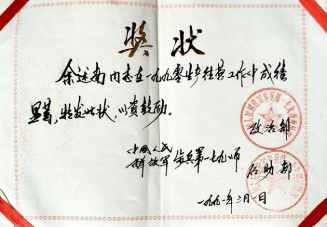 奖状
余述南同志在一九九零生产经营工作中成绩
显著，特发此状，以资鼓励。
政治部
中国人民
解放军 步兵第一七九师
后勤部
一九九一年二月一日